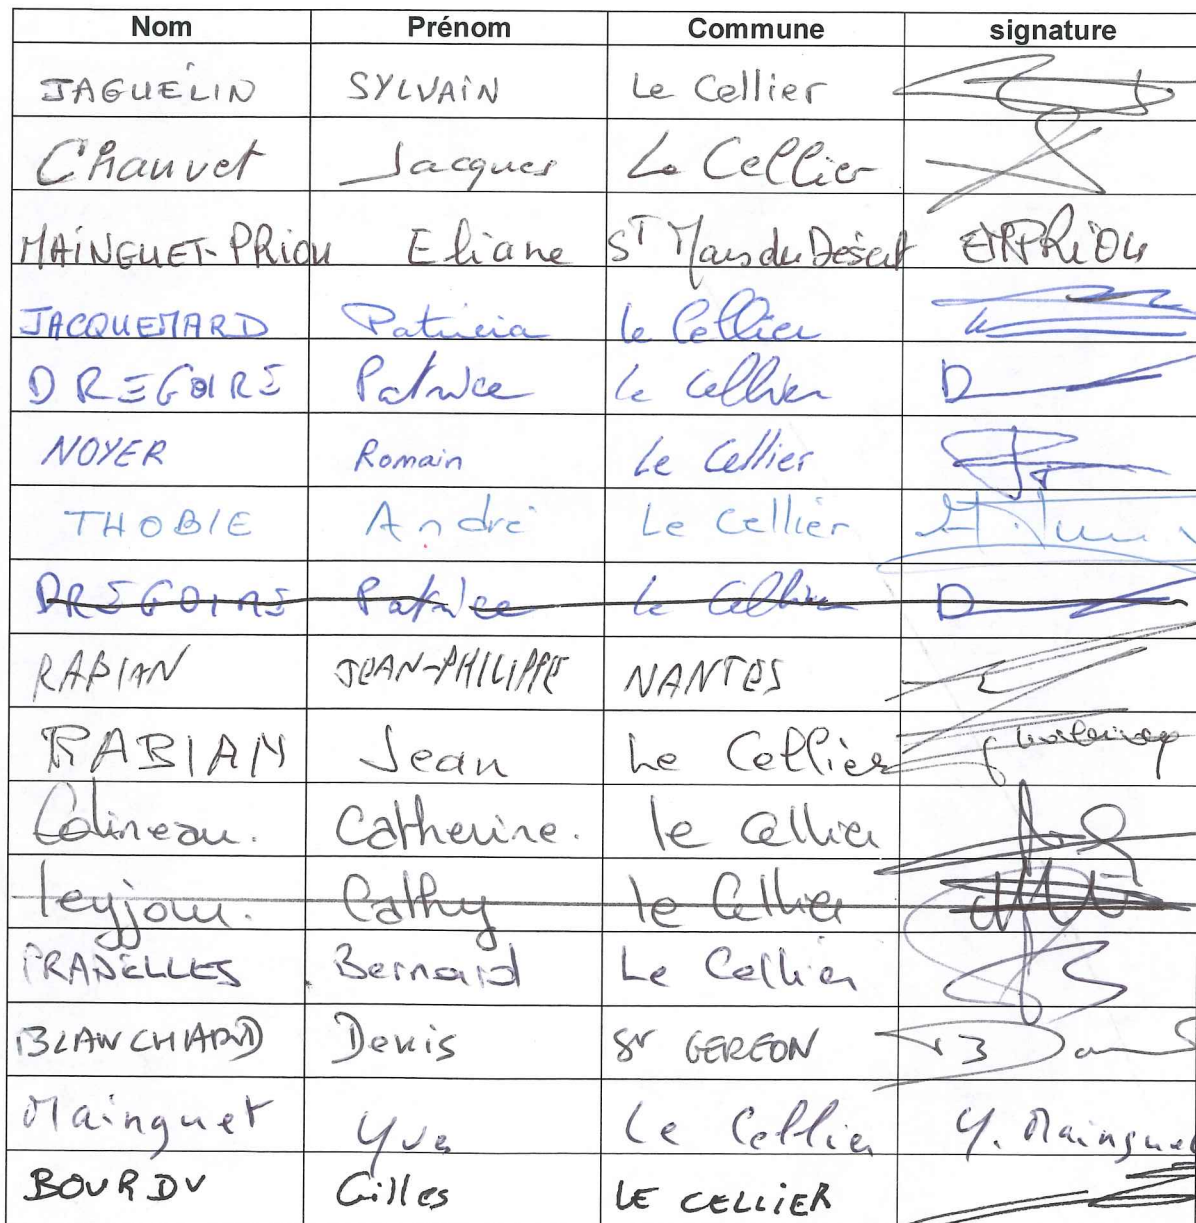 Nom Prénom Commune signature
JAGUELIN SYLVAIN Le Cellier
Chauvet Jacques Le Cellier
MAINGUET-PRIOU Eliane ST Mars du Désert EMPRiOU
JACQUEMARD Patricia le Cellier
DREGOIRE Patrice Le Cellier D
NOYER Romain Le Cellier
THOBIE André Le Cellier
DREGOIRE Patrice Le Cellier D
RABIAN JEAN-PHILIPPE NANTES
RABIAN Jean Le Cellier
Colineau. Catherine. le Cellier
leyjour. Cathy le Cellier
PRADELLES Bernard Le Cellier
BLANCHARD Denis ST GEREON
Mainguet Yves Le Cellier Y. Mainguet
BOURDU Gilles LE CELLIER